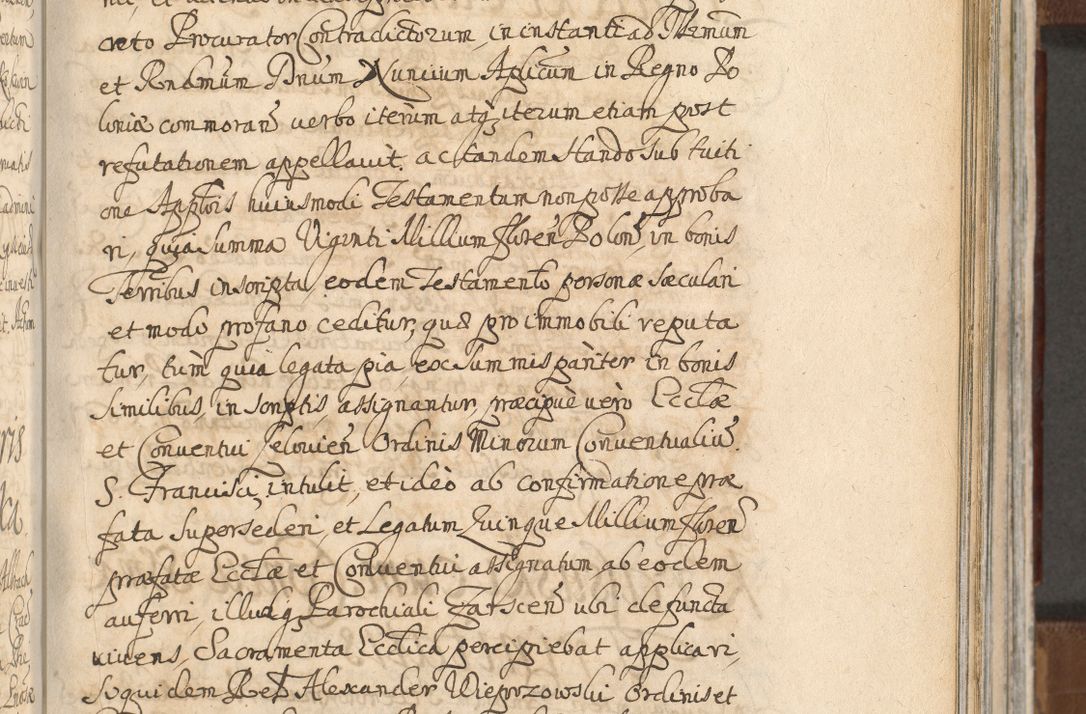 creto Procurator Contradictorum, in instanti ad Illmum
et Rendmum Dnum Nuncium Aplicum in Regno Po
loniæ commoran̄ verbo iterum atq, iterum etiam post
refutationem appellavit. ac tandem stando sub tuiti
one Applōis huiusmodi Testamentum non posse approba
ri, quia summa Viginti Millium floren̄ Polon̄ in bonis
Terribus inscripta, eodem Testamento personæ sæculari
et modo profano ceditur, quæ pro immobili reputa
tur, tùm quia legata pia, ex summis pariter in bonis
similibus, inscriptis, assignantur, præcipuè vero Ecclæ
et Conventui Jelovien̄ Ordinis Minorum Conventualiū
S. Francisci, intulit, et ideò ab confirmatione præ
fata supersederi, et Legatum Quinque Millium floren̄
præfatæ Ecclæ et Conventui assignatum, ab eodem
auferri, illudq, Parochiali Zatscen̄ ubi defuncta
vivens, Sacramenta Ecclīca percipiebat applicari,
Siquidem Rel Alexander Wieprzowski Ordinis et